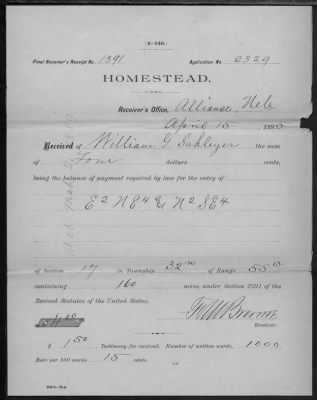 (4-140.)
Final Receiver's Receipt No. 1391 Application No. 2329
HOMESTEAD.
Receiver's Office, Alliance, Neb
April 15 1895
Received of William G. Schleyer the sum
of Four dollars cents,
being the balance of payment required by law for the entry of
E2 NE4 & N2 SE4
of Section 17 in Township 32 N of Range 55
containing 160 acres, under Section 2291 of the
Revised Statutes of the United States.
$ 4.00 F. M. Broome
Receiver.
$ 1.50 Testimony fee received. Number of written words, 1000
Rate per 100 words 15 cents.